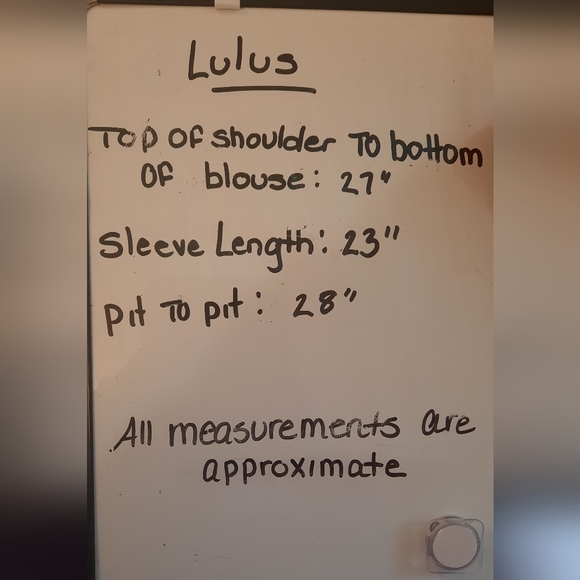 Lulus
Top of shoulder To bottom
of blouse: 27"
Sleeve Length: 23"
pit To pit: 28"
All measurements are
approximate